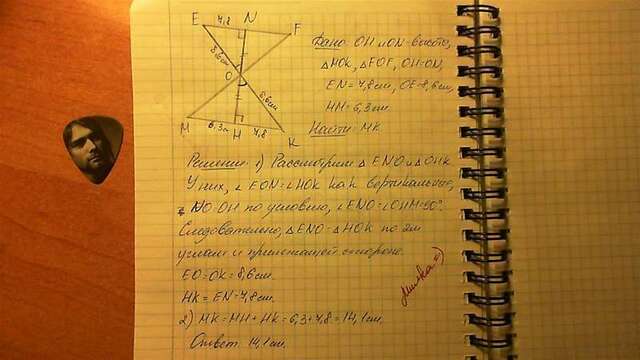 E 7,8 N F
8,6см
O
8,6см
M 6,3см H 7,8 K
Дано: OH и ON-высоты,
△MOK, △EOF, OH=ON,
EN=7,8см, OE=8,6см,
HM=6,3см.
Найти: MK.
Решение: 1) Рассмотрим △ENO и △OHK
У них, ∠EON=∠HOK как вертикальные,
NO=OH по условию, ∠ENO=∠OHM=90°.
Следовательно, △ENO=△HOK по 2м
углам и прилежащей стороне.
EO=OK=8,6см.
HK=EN=7,8см.
2) MK=MH+HK=6,3+7,8=14,1см.
Ответ: 14,1см.